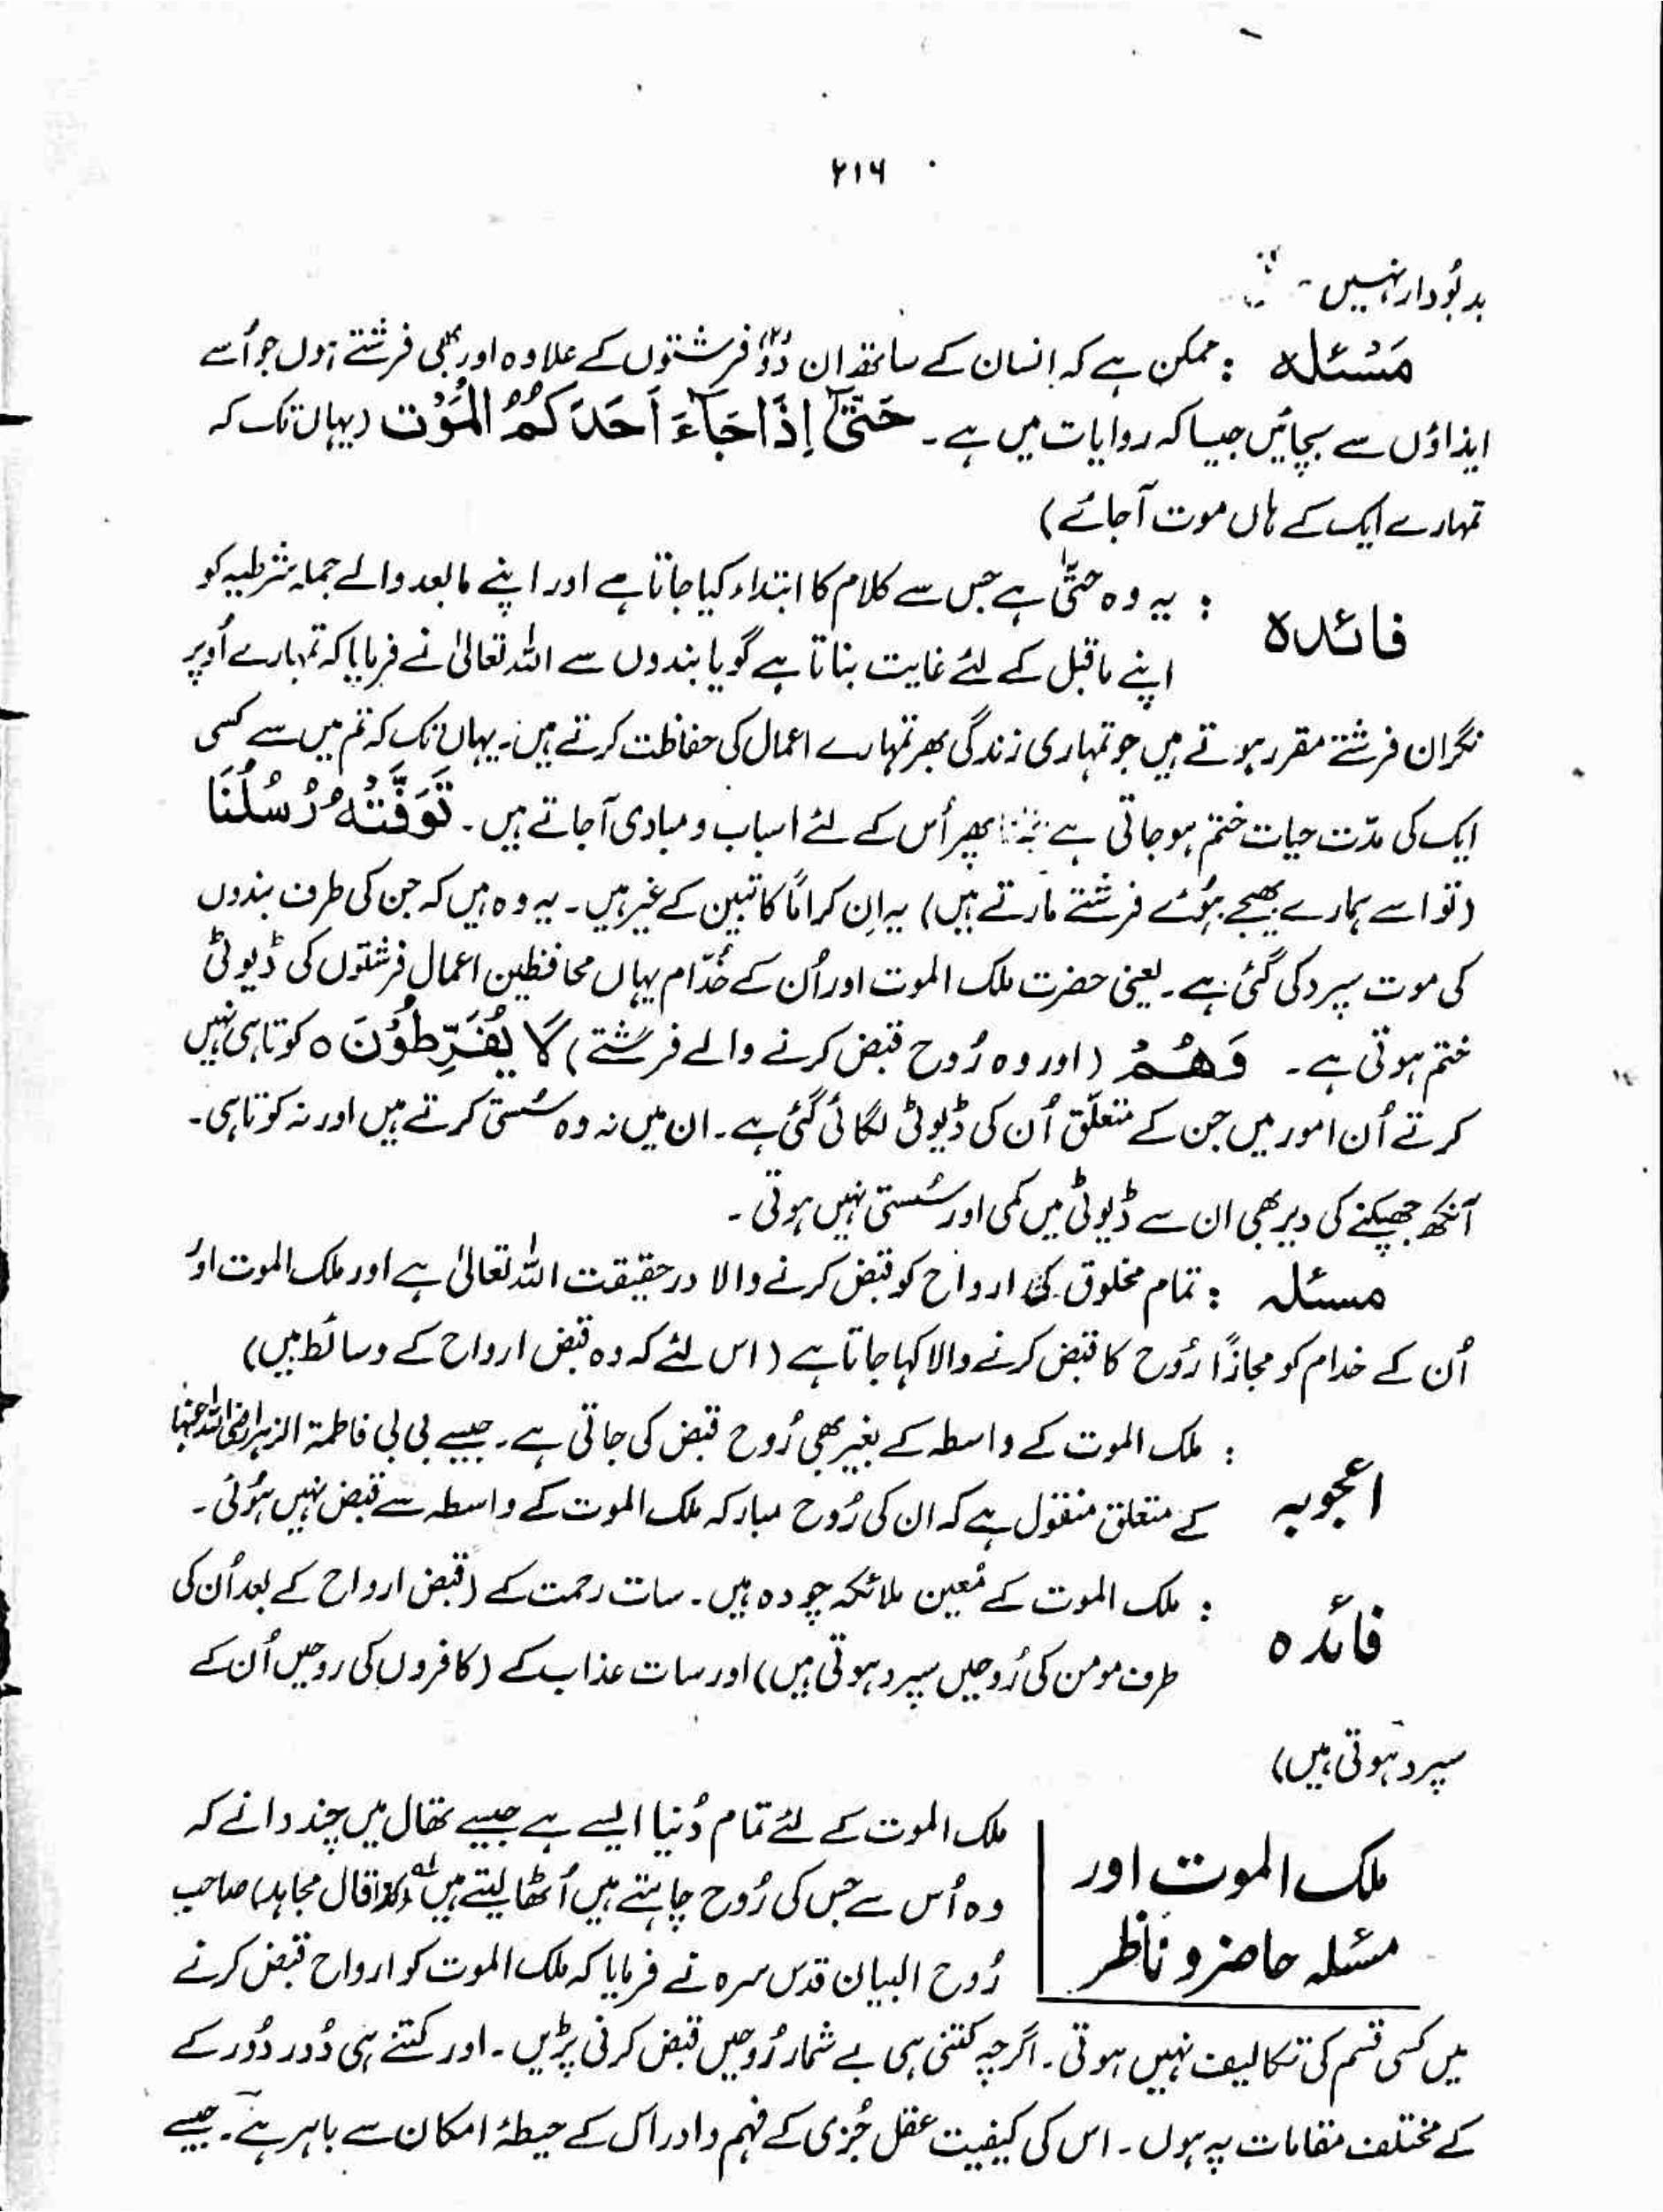 ۲۱۶
بدبُودار نہیں۔
مَسْئلہ : ممکن ہے کہ انسان کے ساتھ ان دو فرشتوں کے علاوہ اور بھی فرشتے ہوں جو اُسے
ایذاؤں سے بچائیں جیسا کہ روایات میں ہے۔ حَتّٰۤی اِذَا جَآءَ اَحَدَکُمُ الْمَوْت (یہاں تک کہ
تمہارے ایک کے ہاں موت آجائے)
فائدہ : یہ وہ حتّٰی ہے جس سے کلام کا ابتداء کیا جاتا ہے اور اپنے مابعد والے جملہ شرطیہ کو
اپنے ماقبل کے لئے غایت بناتا ہے گویا بندوں سے اللہ تعالیٰ نے فرمایا کہ تمہارے اُوپر
نگران فرشتے مقرر ہوتے ہیں جو تمہاری زندگی بھر تمہارے اعمال کی حفاظت کرتے ہیں۔ یہاں تک کہ تم میں سے کسی
ایک کی مدّت حیات ختم ہو جاتی ہے پھر اُس کے لئے اسباب و مبادی آجاتے ہیں۔ تَوَفَّتْہُ رُسُلُنَا
(تو اسے ہمارے بھیجے ہُوئے فرشتے مارتے ہیں) یہ اِن کراماً کاتبین کے غیر ہیں۔ یہ وہ ہیں کہ جن کی طرف بندوں
کی موت سپرد کی گئی ہے۔ یعنی حضرت ملک الموت اور اُن کے خُدّام یہاں محافظین اعمال فرشتوں کی ڈیوٹی
ختم ہوتی ہے۔ وَھُمْ (اور وہ رُوح قبض کرنے والے فرشتے) لَا یُفَرِّطُوْنَ ہ کوتاہی نہیں
کرتے اُن امور میں جن کے متعلّق اُن کی ڈیوٹی لگائی گئی ہے۔ ان میں نہ وہ سُستی کرتے ہیں اور نہ کوتاہی۔
آنکھ جھپکنے کی دیر بھی ان سے ڈیوٹی میں کمی اور سُستی نہیں ہوتی۔
مسئلہ : تمام مخلوق کی ارواح کو قبض کرنے والا درحقیقت اللہ تعالیٰ ہے اور ملک الموت اور
اُن کے خدام کو مجازًا رُوح کا قبض کرنے والا کہا جاتا ہے (اس لئے کہ وہ قبض ارواح کے وسائط ہیں)
اعجوبہ : ملک الموت کے واسطہ کے بغیر بھی رُوح قبض کی جاتی ہے۔ جیسے بی بی فاطمۃ الزہرا رضی اللہ عنہا
کے متعلق منقول ہے کہ ان کی رُوح مبارکہ ملک الموت کے واسطہ سے قبض نہیں ہُوئی۔
فائدہ : ملک الموت کے مُعین ملائکہ چودہ ہیں۔ سات رحمت کے (قبض ارواح کے بعد اُن کی
طرف مومن کی رُوحیں سپرد ہوتی ہیں) اور سات عذاب کے (کافروں کی روحیں اُن کے
سپرد ہوتی ہیں)
ملک الموت اور
مسئلہ حاضر و ناظر
ملک الموت کے لئے تمام دُنیا ایسے ہے جیسے تھال میں چند دانے کہ
وہ اُس سے جس کی رُوح چاہتے ہیں اُٹھا لیتے ہیں (کذا قال مجاہد) صاحب
رُوح البیان قدس سرہ نے فرمایا کہ ملک الموت کو ارواح قبض کرنے
میں کسی قسم کی تکالیف نہیں ہوتی۔ اگرچہ کتنی ہی بے شمار رُوحیں قبض کرنی پڑیں۔ اور کتنے ہی دُور دُور کے
کے مختلف مقامات پہ ہوں۔ اس کی کیفیت عقل جُزی کے فہم و ادراک کے حیطۂ امکان سے باہر ہے۔ جیسے